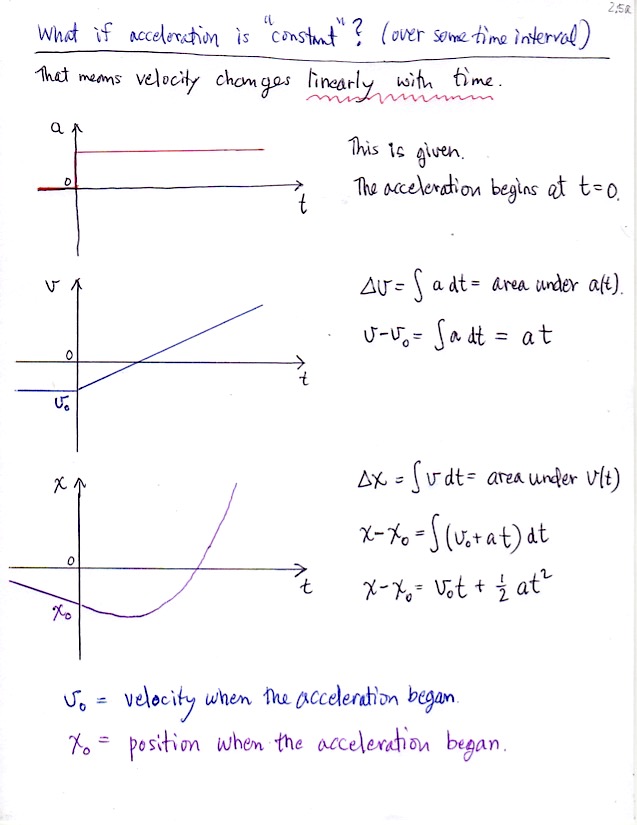 2.5a
What if acceleration is "constant"? (over some time interval)
That means velocity changes linearly with time.
a
0
t
This is given.
The acceleration begins at t=0.
v
0
t
v₀
Δv = ∫ a dt = area under a(t).
v-v₀ = ∫ a dt = at
x
0
t
x₀
Δx = ∫ v dt = area under v(t)
x-x₀ = ∫(v₀+at) dt
x-x₀ = v₀t + ½ at²
v₀ = velocity when the acceleration began.
x₀ = position when the acceleration began.